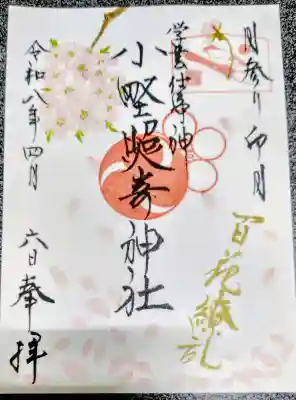 月参り 卯月
百花繚乱
学業結神
小野照崎神社
令和八年四月
六日奉拝